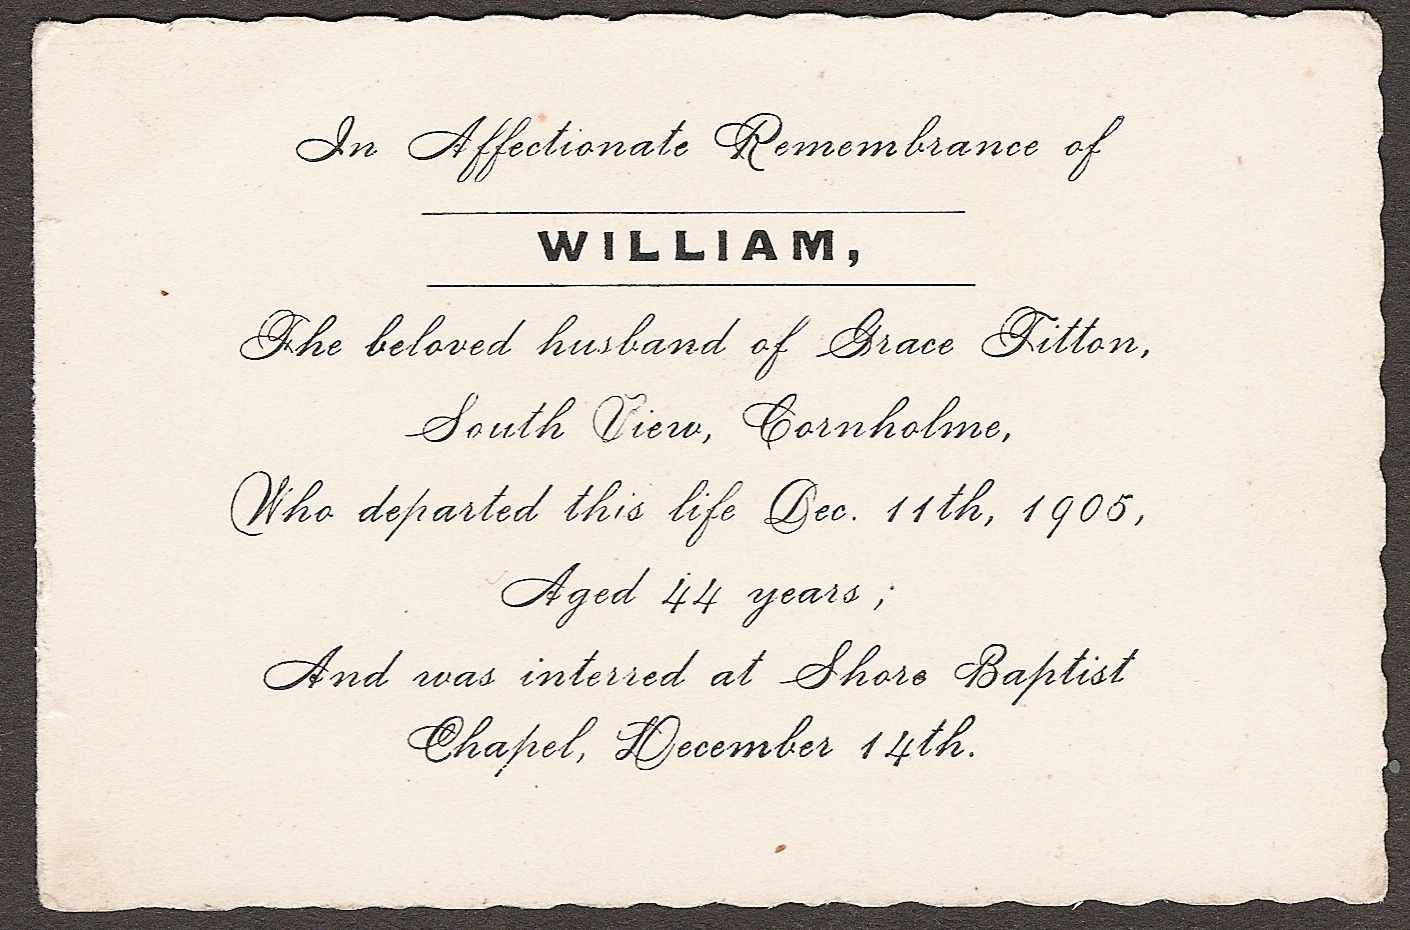 In Affectionate Remembrance of
WILLIAM,
The beloved husband of Grace Fitton,
South View, Cornholme,
Who departed this life Dec. 11th, 1905,
Aged 44 years ;
And was interred at Shore Baptist
Chapel, December 14th.